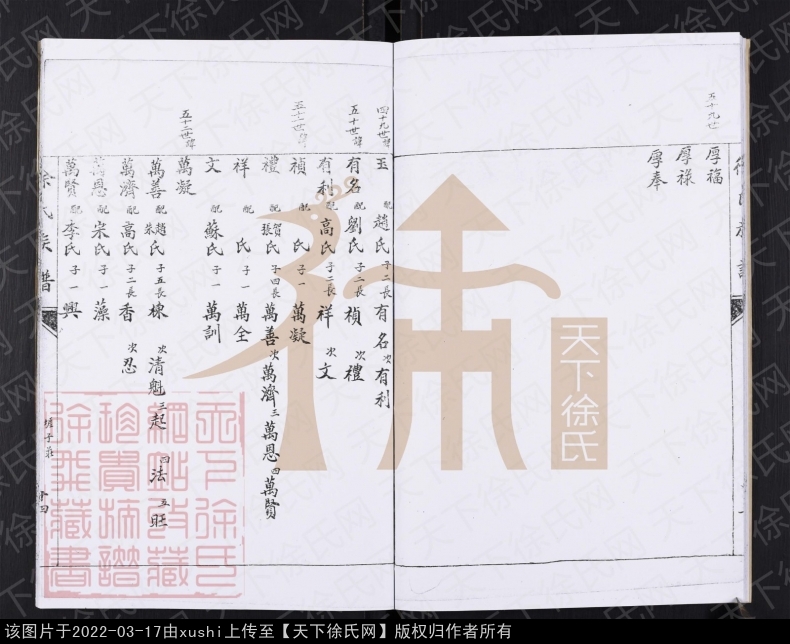 五十九世
厚福
厚禄
厚奉
徐氏族譜
四十九世
玉 配趙氏 子二 長有名 次有利
五十世
有名 配劉氏 子二 長禎 次禮
有利 配高氏 子二 長祥 次文
五十一世
禎 配 氏 子一 萬凝
禮 配賀張氏 子四 長萬善 次萬濟 三萬恩 四萬賢
祥 配 氏 子一 萬全
文 配蘇氏 子一 萬訓
五十二世
萬凝
萬善 配趙朱氏 子五 長棟 次清魁 三起 四法 五旺
萬濟 配高氏 子二 長香 次忍
萬恩 配宋氏 子一 藻
萬賢 配李氏 子一 興
徐氏族譜
十四
天下徐氏
天下徐氏網點校藏珍貴撫譜徐飛藏書
天下徐氏网
该图片于2022-03-17由xushi上传至【天下徐氏网】版权归作者所有